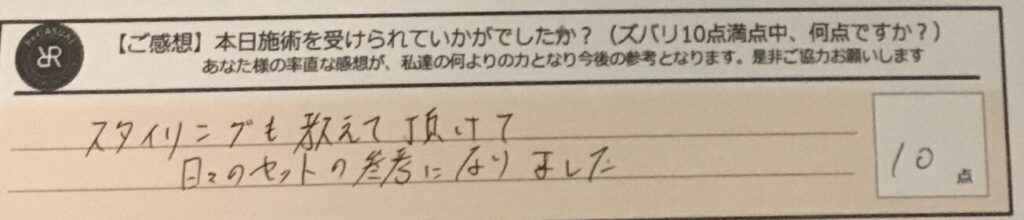 【ご感想】本日施術を受けられていかがでしたか？（ズバリ10点満点中、何点ですか？）
あなた様の率直な感想が、私達の何よりの力となり今後の参考となります。是非ご協力お願いします
スタイリングも教えて頂けて
日々のセットの参考になりました
10点